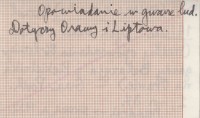 Opowiadanie w gwarze lud.
Dotyczy Orawy i Liptowa.